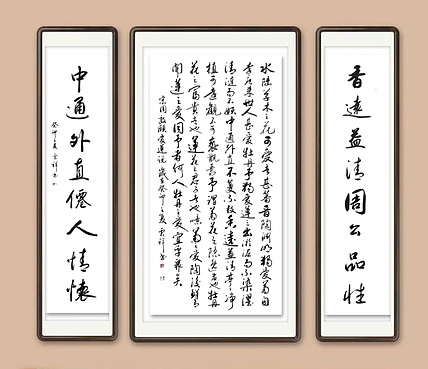 香遠益清周公品性
水陸草木之花可愛者甚蕃晉陶淵明獨愛菊自
李唐來世人甚愛牡丹予獨愛蓮之出淤泥而不染濯
清漣而不妖中通外直不蔓不枝香遠益清亭亭淨
植可遠觀不可褻翫焉予謂菊花之隱逸者也牡丹
花之富貴者也蓮花之君子者也噫菊之愛陶後鮮有
聞蓮之愛同予者何人牡丹之愛宜乎眾矣
宋周敦頤愛蓮說 歲在癸卯之夏雲祥書
中通外直僊人情懷
癸卯之夏雲祥書